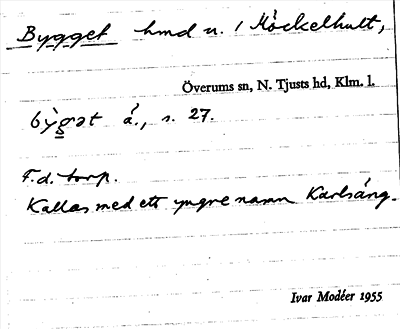 Bygget hmd u. / Höckelhult,
Överums sn, N. Tjusts hd, Klm. l.
by̆gət å., s. 27.
F.d. torp.
Kallas med ett yngre namn Karlsäng.
Ivar Modéer 1955